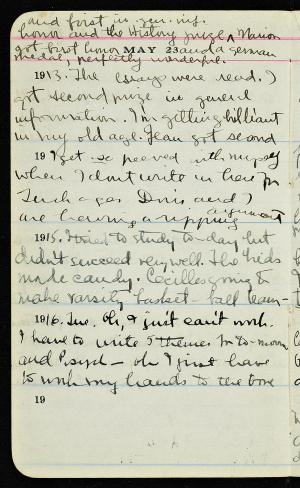 and first in
honor and the History prize, Marion
got first honor MAY 23 and a german
medal, perfectly wonderful.
1913. The essays were read. I
got second prize in general
information. I'm getting brilliant
in my old age. Jean got second
19 I get so peeved with myself
when I don't write in here for
Such a gas Doris and I
are having a ripping argument
1915. I tried to study to-day but
didn't succeed very well. The kids
made candy. Cecilles going to
make varsity basket-ball team-
1916. Tue. Oh, I just can't work.
I have to write 5 themes for to-morrow
and Psych - oh I just have
to work my hands to the bone
19